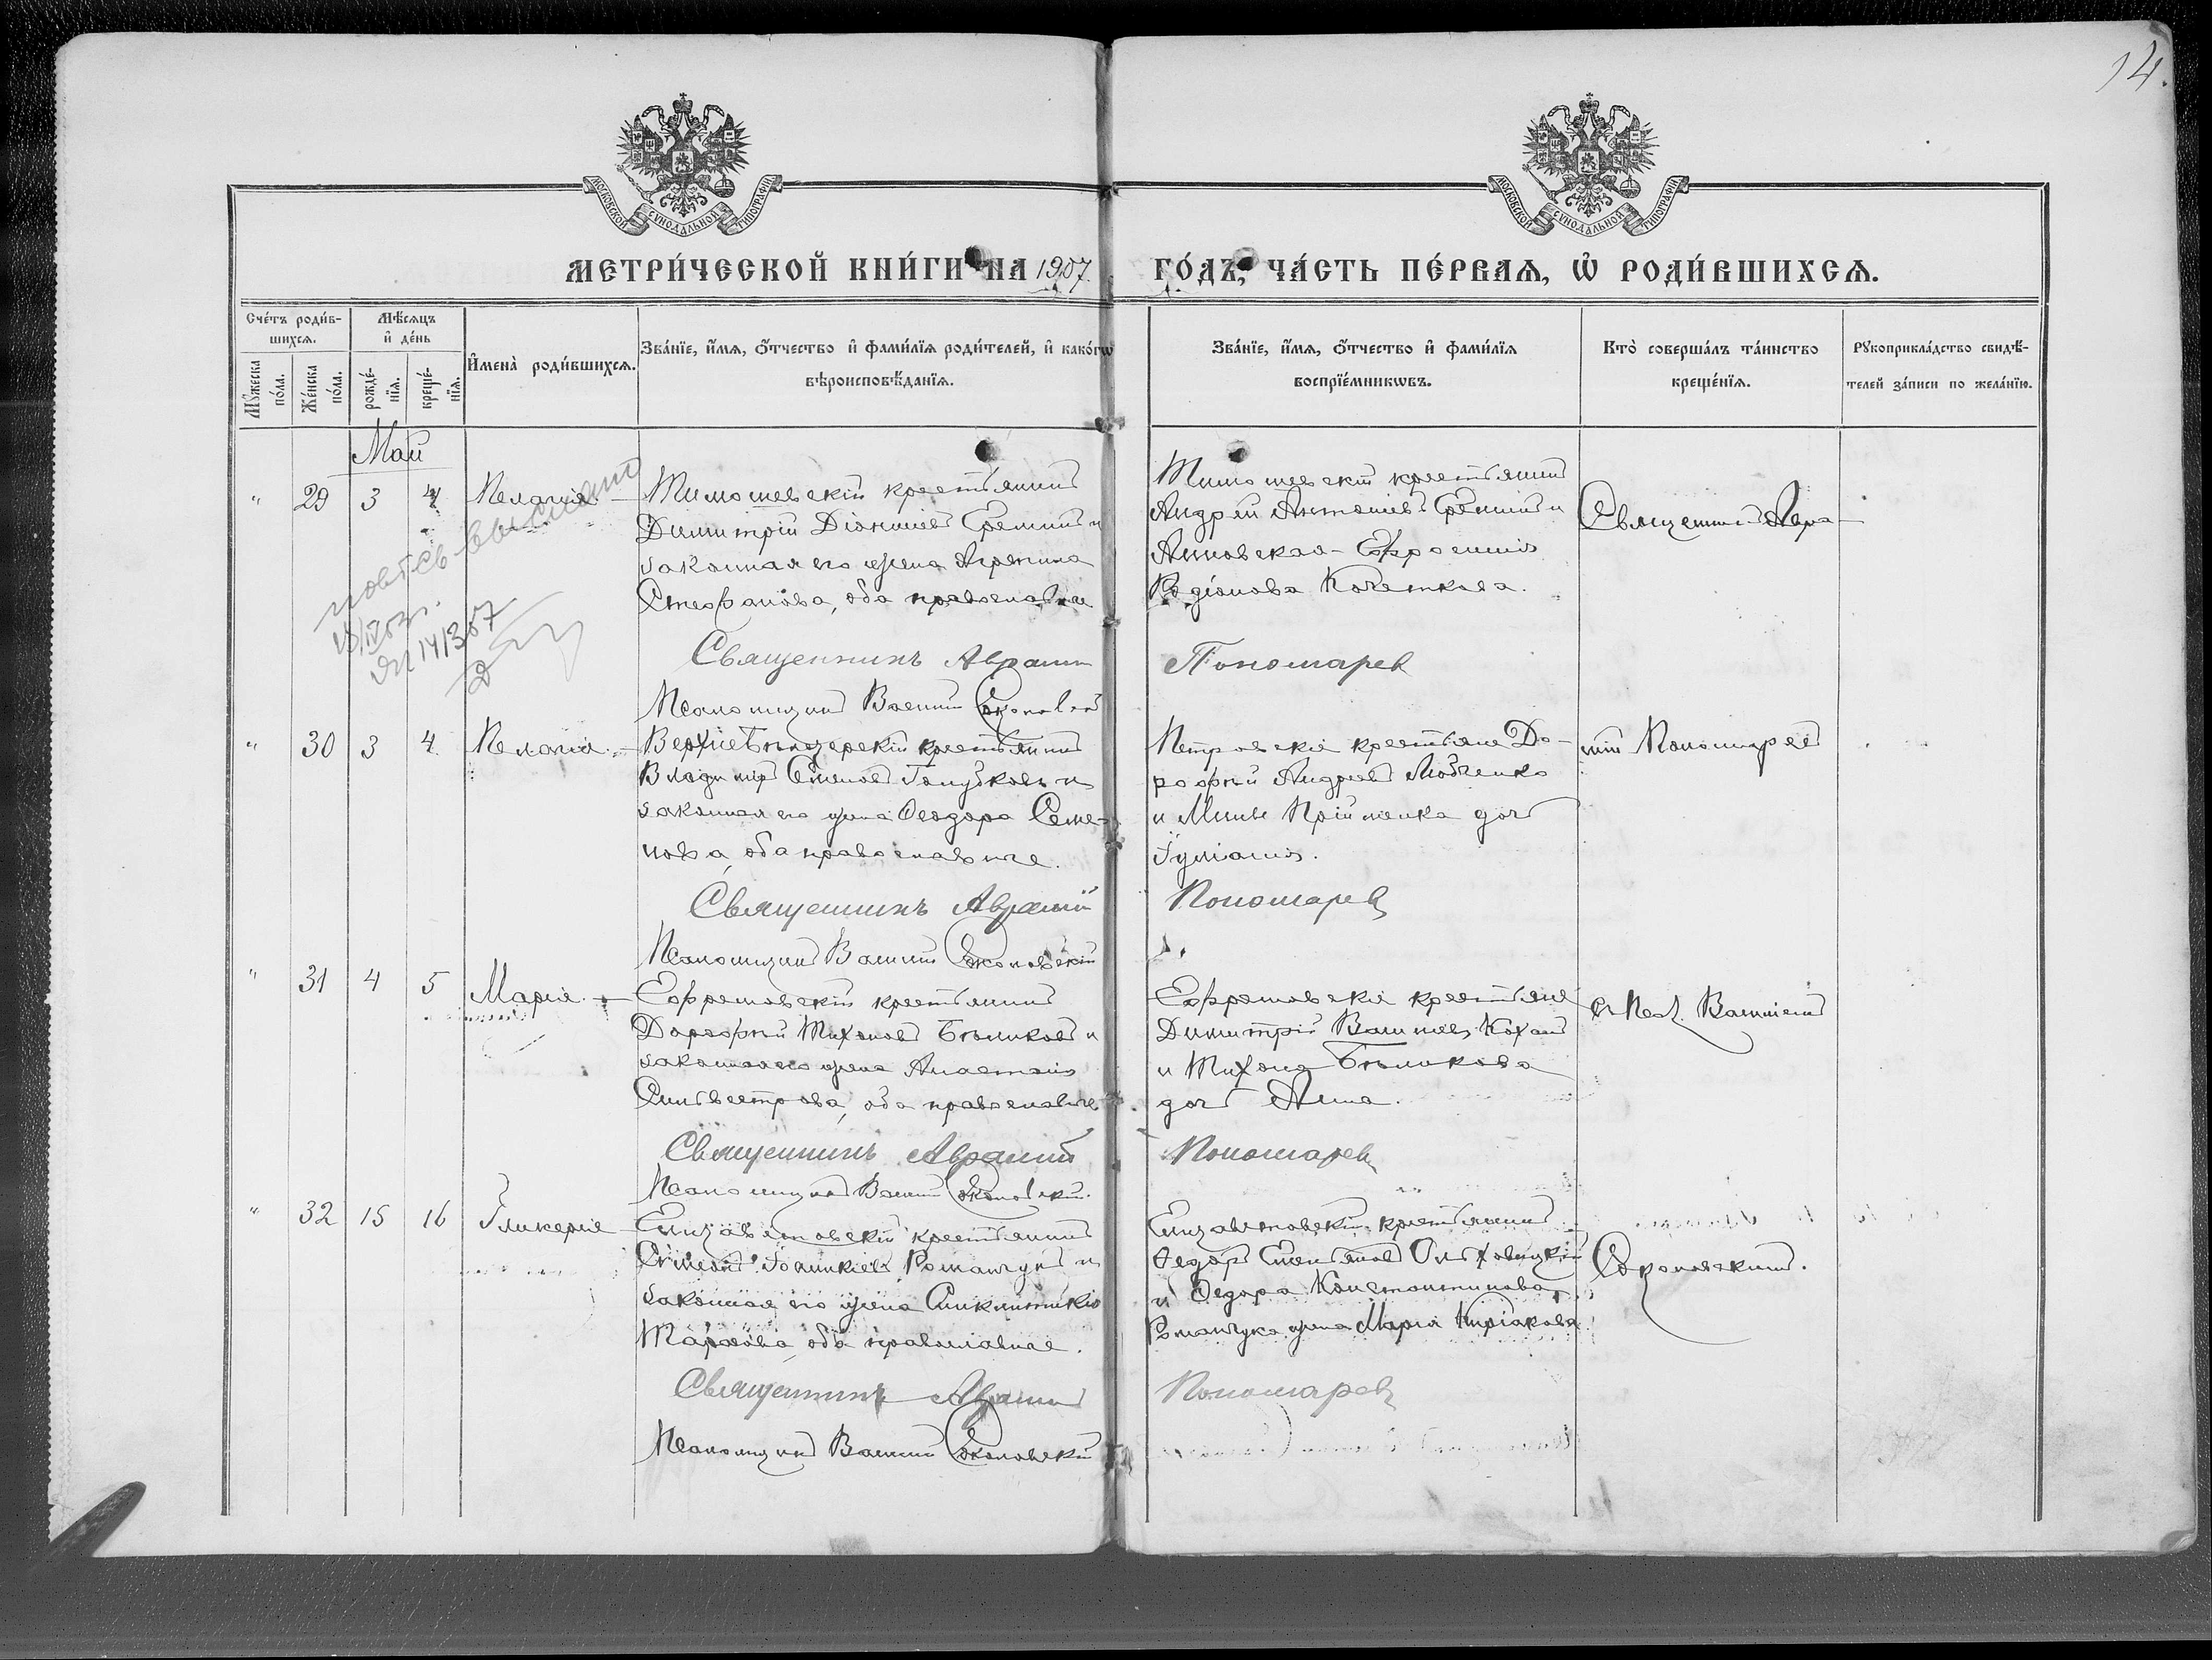 14.
МОСКОВСКОЙ СѴНОДАЛЬНОЙ ТИПОГРАФІИ
МОСКОВСКОЙ СѴНОДАЛЬНОЙ ТИПОГРАФІИ
МЕТРИ́ЧЕСКОЙ КНИ́ГИ НА 1907 ГО́ДЪ, ЧА́СТЬ ПЕ́РВАЯ, Ѡ҆ РОДИ́ВШИХСЯ.
Сче́тъ роди́в-
шихся.
Мꙋ́жеска по́ла.
Же́нска по́ла.
Мѣ́сяцъ
и҆ де́нь
рожде́-
нїя.
креще́-
нїя.
И҆мена̀ роди́вшихся.
Зва́нїе, и҆́мя, ѻ҆́тчество и҆ фами́лїя роди́телей, и҆ како́гѡ
вѣроисповѣ́данїя.
Зва́нїе, и҆́мя, ѻ҆́тчество и҆ фами́лїя
воспрїе́мникѡвъ.
Кто̀ соверша́лъ та́инство
креще́нїя.
Рꙋкоприкла́дство свидѣ́-
телей за́писи по жела́нїю.
Май
" 29 3 4 Пелагія
Тимошевскій крестьянинъ
Димитрій Діонисіевъ Еремин и
законная его жена Агрепина
Стефанова, оба православные
Священникъ Аврамій
Псаломщикъ Василій Соколовскій
Тимошевскій крестьянинъ
Андрей Антоніевъ Еремин и
Анновская - Ефросинія
Родіонова Кочеткова.
Пономарев
Священник Авра-
" 30 3 4 Пелагія
Верхнебѣнзерскій крестьянинъ
Владиміръ Семеновъ Голубковъ и
законная его жена Ѳеодора Семе-
нова, оба православные.
Священникъ Аврамій
Псаломщикъ Василій Соколовскій
Петровскіе крестьяне До-
роѳей Андреевъ Любченко
и Мины Пріймака дочь
Іуліанія.
Пономарев
мій Пономаревъ
" 31 4 5 Марія
Ефремовскій крестьянинъ
Дороѳей Тихоновъ Бѣликовъ и
законная его жена Анастасія
Сильвестрова, оба православные
Священникъ Аврамій
Псаломщикъ Василій Соколовскій
Ефремовскіе крестьяне
Димитрій Васильевъ Кохан
и Тихона Бѣликова
дочь Анна.
Пономарев
съ Пса. Василіемъ
" 32 15 16 Гликерія
Елизаветовскій крестьянинъ
Симеонъ Іоанникіевъ Романчукъ и
законная его жена Синклитикія
Тарасова, оба православные.
Священникъ Аврамій
Псаломщикъ Василій Соколовскій
Елизаветовскій крестьянинъ
Ѳедоръ Ольховицкій
и Ѳедора Константинова
Романчука жена Марія Киріакова
Пономарев
Соколовскимъ.